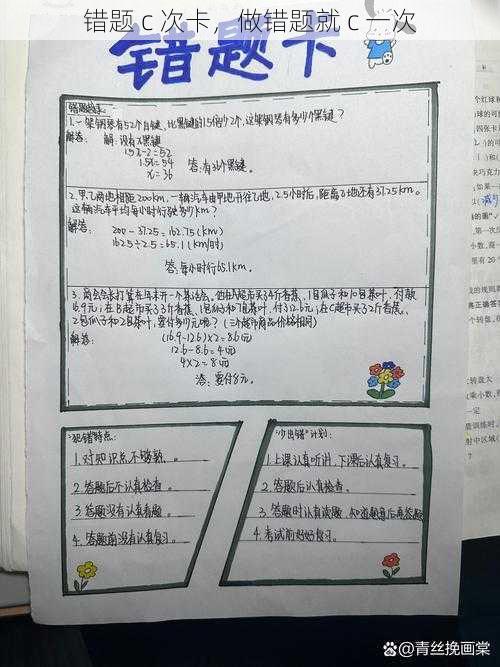 错题 c 次卡，做错题就 c 一次
错题卡
错题题集:
1.一架钢琴有52个白键，比黑键的1.5倍少2个，这架钢琴有多少个黑键？
解答: 解:设有x黑键
1.5x-2=52
1.5x=54 答:有36个黑键。
x=36
2.甲乙两地相距200km,一辆汽车由甲地开往乙地,2.5小时后,距离乙地还有37.25km。
这辆汽车平均每小时行驶多少km？
解答: 200-37.25=162.75(km)
162.5÷2.5=65.1(km/时)
答:每小时行65.1km。
付款
16.9元;在B超市买3.2斤香蕉、1包瓜子和7包茶叶,付312.6元;在C超市买3.2斤香蕉、
2包瓜子和2包茶叶,要付多少元呢？(三个超市商品价格相同)
解答: (16.9-12.6)×2=8.6(元)
12.6-8.6=4(元)
4×2=8(元)
答:要付8元。
犯错特点:
1.对知识点不够熟。
2.答题后不认真检查。
3.答题没有认真看题。
4.答题前没有认真复习。
"少出错"计划:
1.上课认真听讲,下课后认真复习。
2.答题后认真检查。
3.答题时认真读题,知道题意后再答题
4.考试前好好复习。
@青丝挽画棠